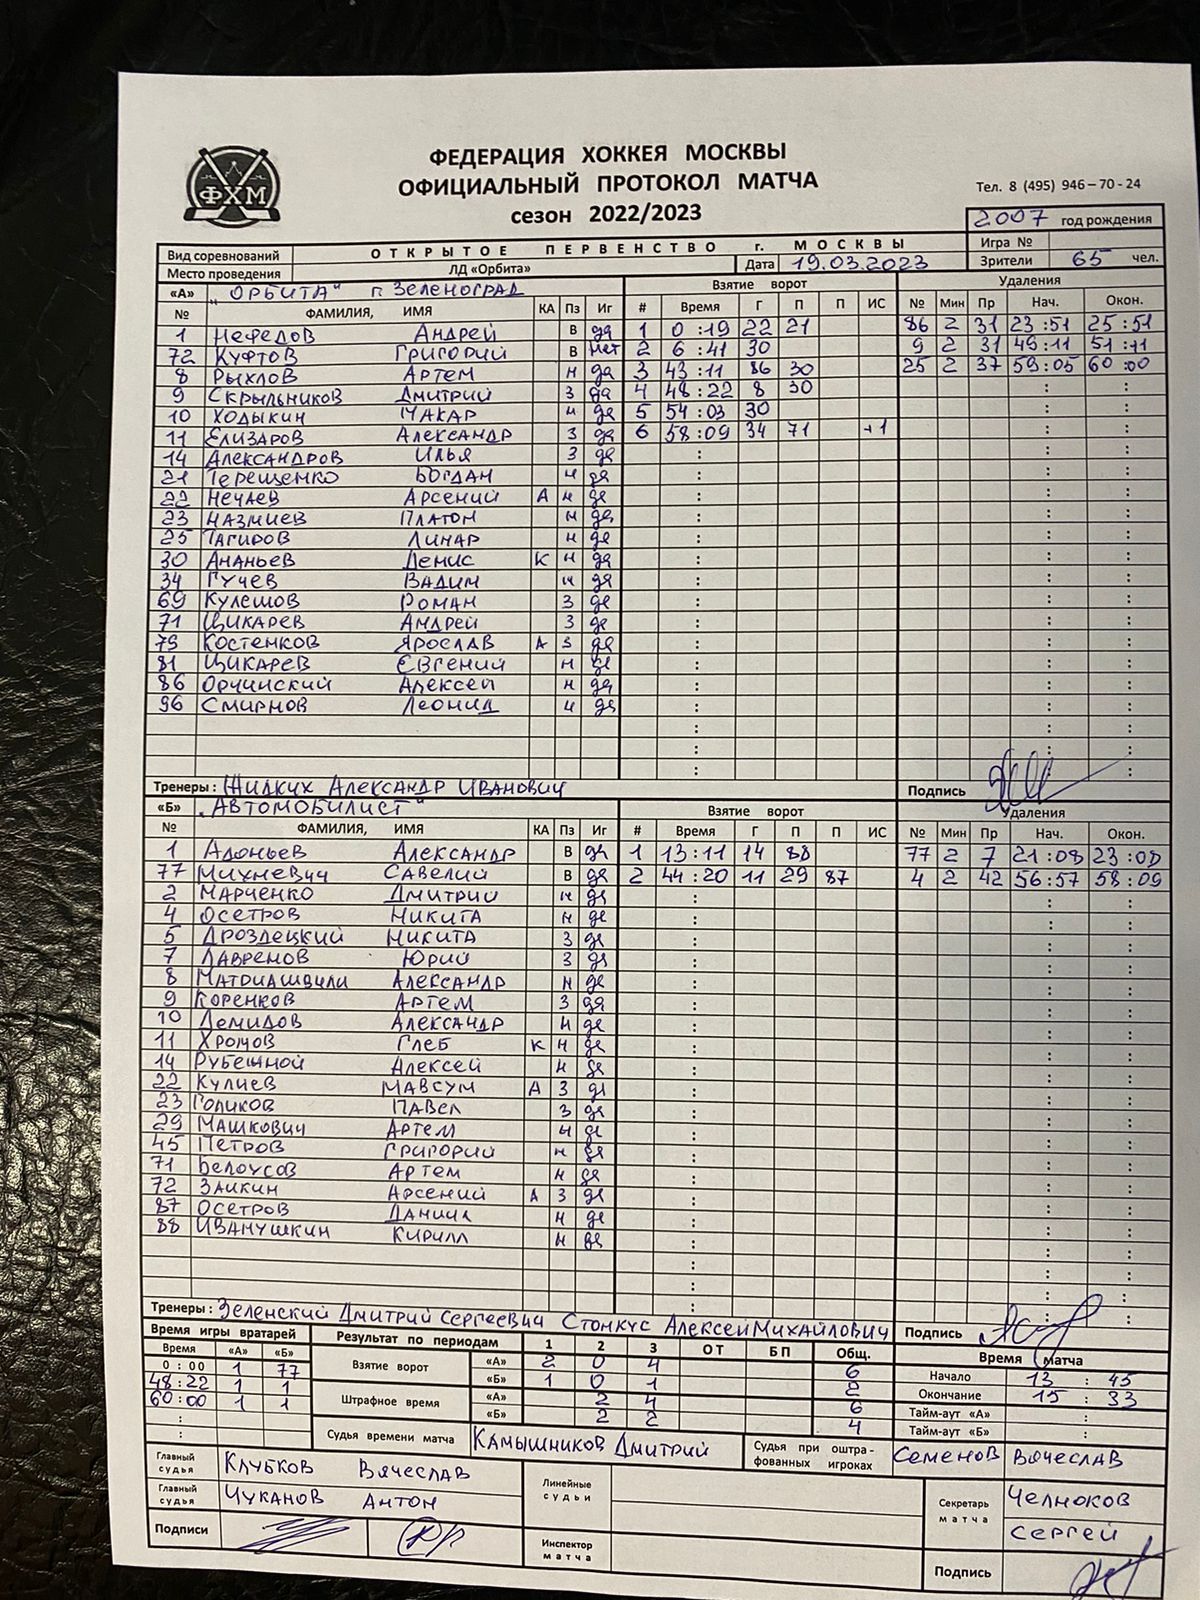 ФЕДЕРАЦИЯ ХОККЕЯ МОСКВЫ
ОФИЦИАЛЬНЫЙ ПРОТОКОЛ МАТЧА
сезон 2022/2023
ФХМ
Тел. 8 (495) 946-70-24
2007 год рождения
Вид соревнований ОТКРЫТОЕ ПЕРВЕНСТВО г. МОСКВЫ Игра №
Место проведения ЛД «Орбита» Дата 19.03.2023 Зрители 65 чел.
«А» "ОРБИТА" г. ЗЕЛЕНОГРАД Взятие ворот Удаления
№ ФАМИЛИЯ, ИМЯ КА Пз Иг # Время Г П П ИС № Мин Пр Нач. Окон.
1 НЕФЕДОВ АНДРЕЙ В да 1 0:19 22 21 86 2 31 23:51 25:51
72 КУФТОВ ГРИГОРИЙ В нет 2 6:41 30 9 2 31 49:11 51:11
8 РЫХЛОВ АРТЕМ Н да 3 43:11 86 30 25 2 37 59:05 60:00
9 СКРЫЛЬНИКОВ ДМИТРИЙ З да 4 48:22 8 30
10 ХОДЫКИН МАКАР Н да 5 54:03 30
11 ЕЛИЗАРОВ АЛЕКСАНДР З да 6 58:09 34 71 +1
14 АЛЕКСАНДРОВ ИЛЬЯ З да
21 ТЕРЕЩЕНКО БОГДАН Н да
22 НЕЧАЕВ АРСЕНИЙ А Н да
23 НАЗМИЕВ ПЛАТОН Н да
25 ТАГИРОВ ЛИНАР Н да
30 АНАНЬЕВ ДЕНИС К Н да
34 ГУЧЕВ ВАДИМ Н да
69 КУЛЕШОВ РОМАН З да
71 ЦИКАРЕВ АНДРЕЙ З да
79 КОСТЕНКОВ ЯРОСЛАВ А З да
81 ЦИКАРЕВ ЕВГЕНИЙ Н да
86 ОРЧИНСКИЙ АЛЕКСЕЙ Н да
96 СМИРНОВ ЛЕОНИД Н да
Тренеры: ЖИДКИХ АЛЕКСАНДР ИВАНОВИЧ Подпись
«Б» "АВТОМОБИЛИСТ" Взятие ворот Удаления
№ ФАМИЛИЯ, ИМЯ КА Пз Иг # Время Г П П ИС № Мин Пр Нач. Окон.
1 АДОНЬЕВ АЛЕКСАНДР В да 1 13:11 14 88 77 2 7 21:08 23:08
77 МИХНЕВИЧ САВЕЛИЙ В да 2 44:20 11 29 87 4 2 42 56:57 58:09
2 МАРЧЕНКО ДМИТРИЙ Н да
4 ОСЕТРОВ НИКИТА Н да
5 ДРОЗДЕЦКИЙ НИКИТА З да
7 ЛАВРЕНОВ ЮРИЙ З да
8 МАТРИАШВИЛИ АЛЕКСАНДР Н да
9 КОРЕНКОВ АРТЕМ З да
10 ДЕМИДОВ АЛЕКСАНДР Н да
11 ХРОМОВ ГЛЕБ К Н да
14 РУБЕЖНОЙ АЛЕКСЕЙ Н да
22 КУЛИЕВ МАВСУМ А З да
23 ГОЛИКОВ ПАВЕЛ З да
29 МАШКОВИЧ АРТЕМ Н да
45 ПЕТРОВ ГРИГОРИЙ Н да
71 БЕЛОУСОВ АРТЕМ Н да
72 ЗАИКИН АРСЕНИЙ А З да
87 ОСЕТРОВ ДАНИИЛ Н да
88 ИВАНУШКИН КИРИЛЛ Н да
Тренеры: ЗЕЛЕНСКИЙ ДМИТРИЙ СЕРГЕЕВИЧ СТОНКУС АЛЕКСЕЙ МИХАЙЛОВИЧ Подпись
Время игры вратарей Результат по периодам 1 2 3 ОТ БП Общ. Время матча
Время «А» «Б» Взятие ворот «А» 2 0 4 6 Начало 13:45
0:00 1 77 «Б» 1 0 1 2 Окончание 15:33
48:22 1 1 Штрафное время «А» 2 4 6 Тайм-аут «А» :
60:00 1 1 «Б» 2 2 4 Тайм-аут «Б» :
Судья времени матча КАМЫШНИКОВ ДМИТРИЙ Судья при оштрафованных игроках СЕМЕНОВ ВЯЧЕСЛАВ
Главный судья КЛУБКОВ ВЯЧЕСЛАВ Линейные судьи Секретарь матча ЧЕЛНОКОВ СЕРГЕЙ
Главный судья ЧУКАНОВ АНТОН
Подписи Инспектор матча Подпись